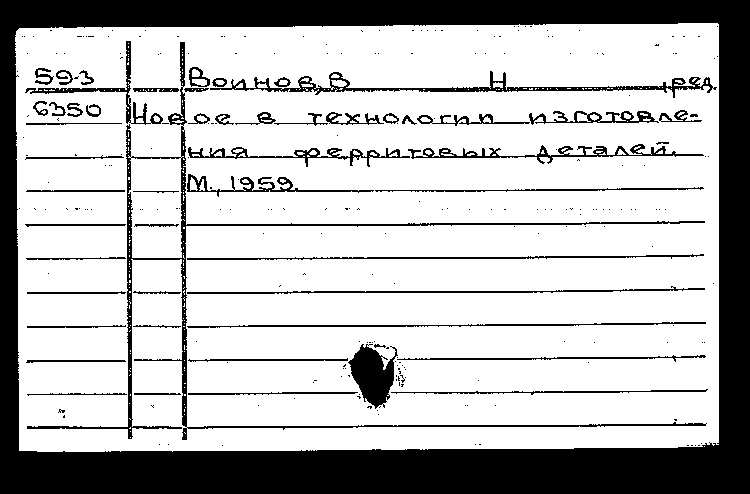 59-3 Воинов, В Н ,ред.
6350 Новое в технологии изготовле-
ния ферритовых деталей.
М., 1959.